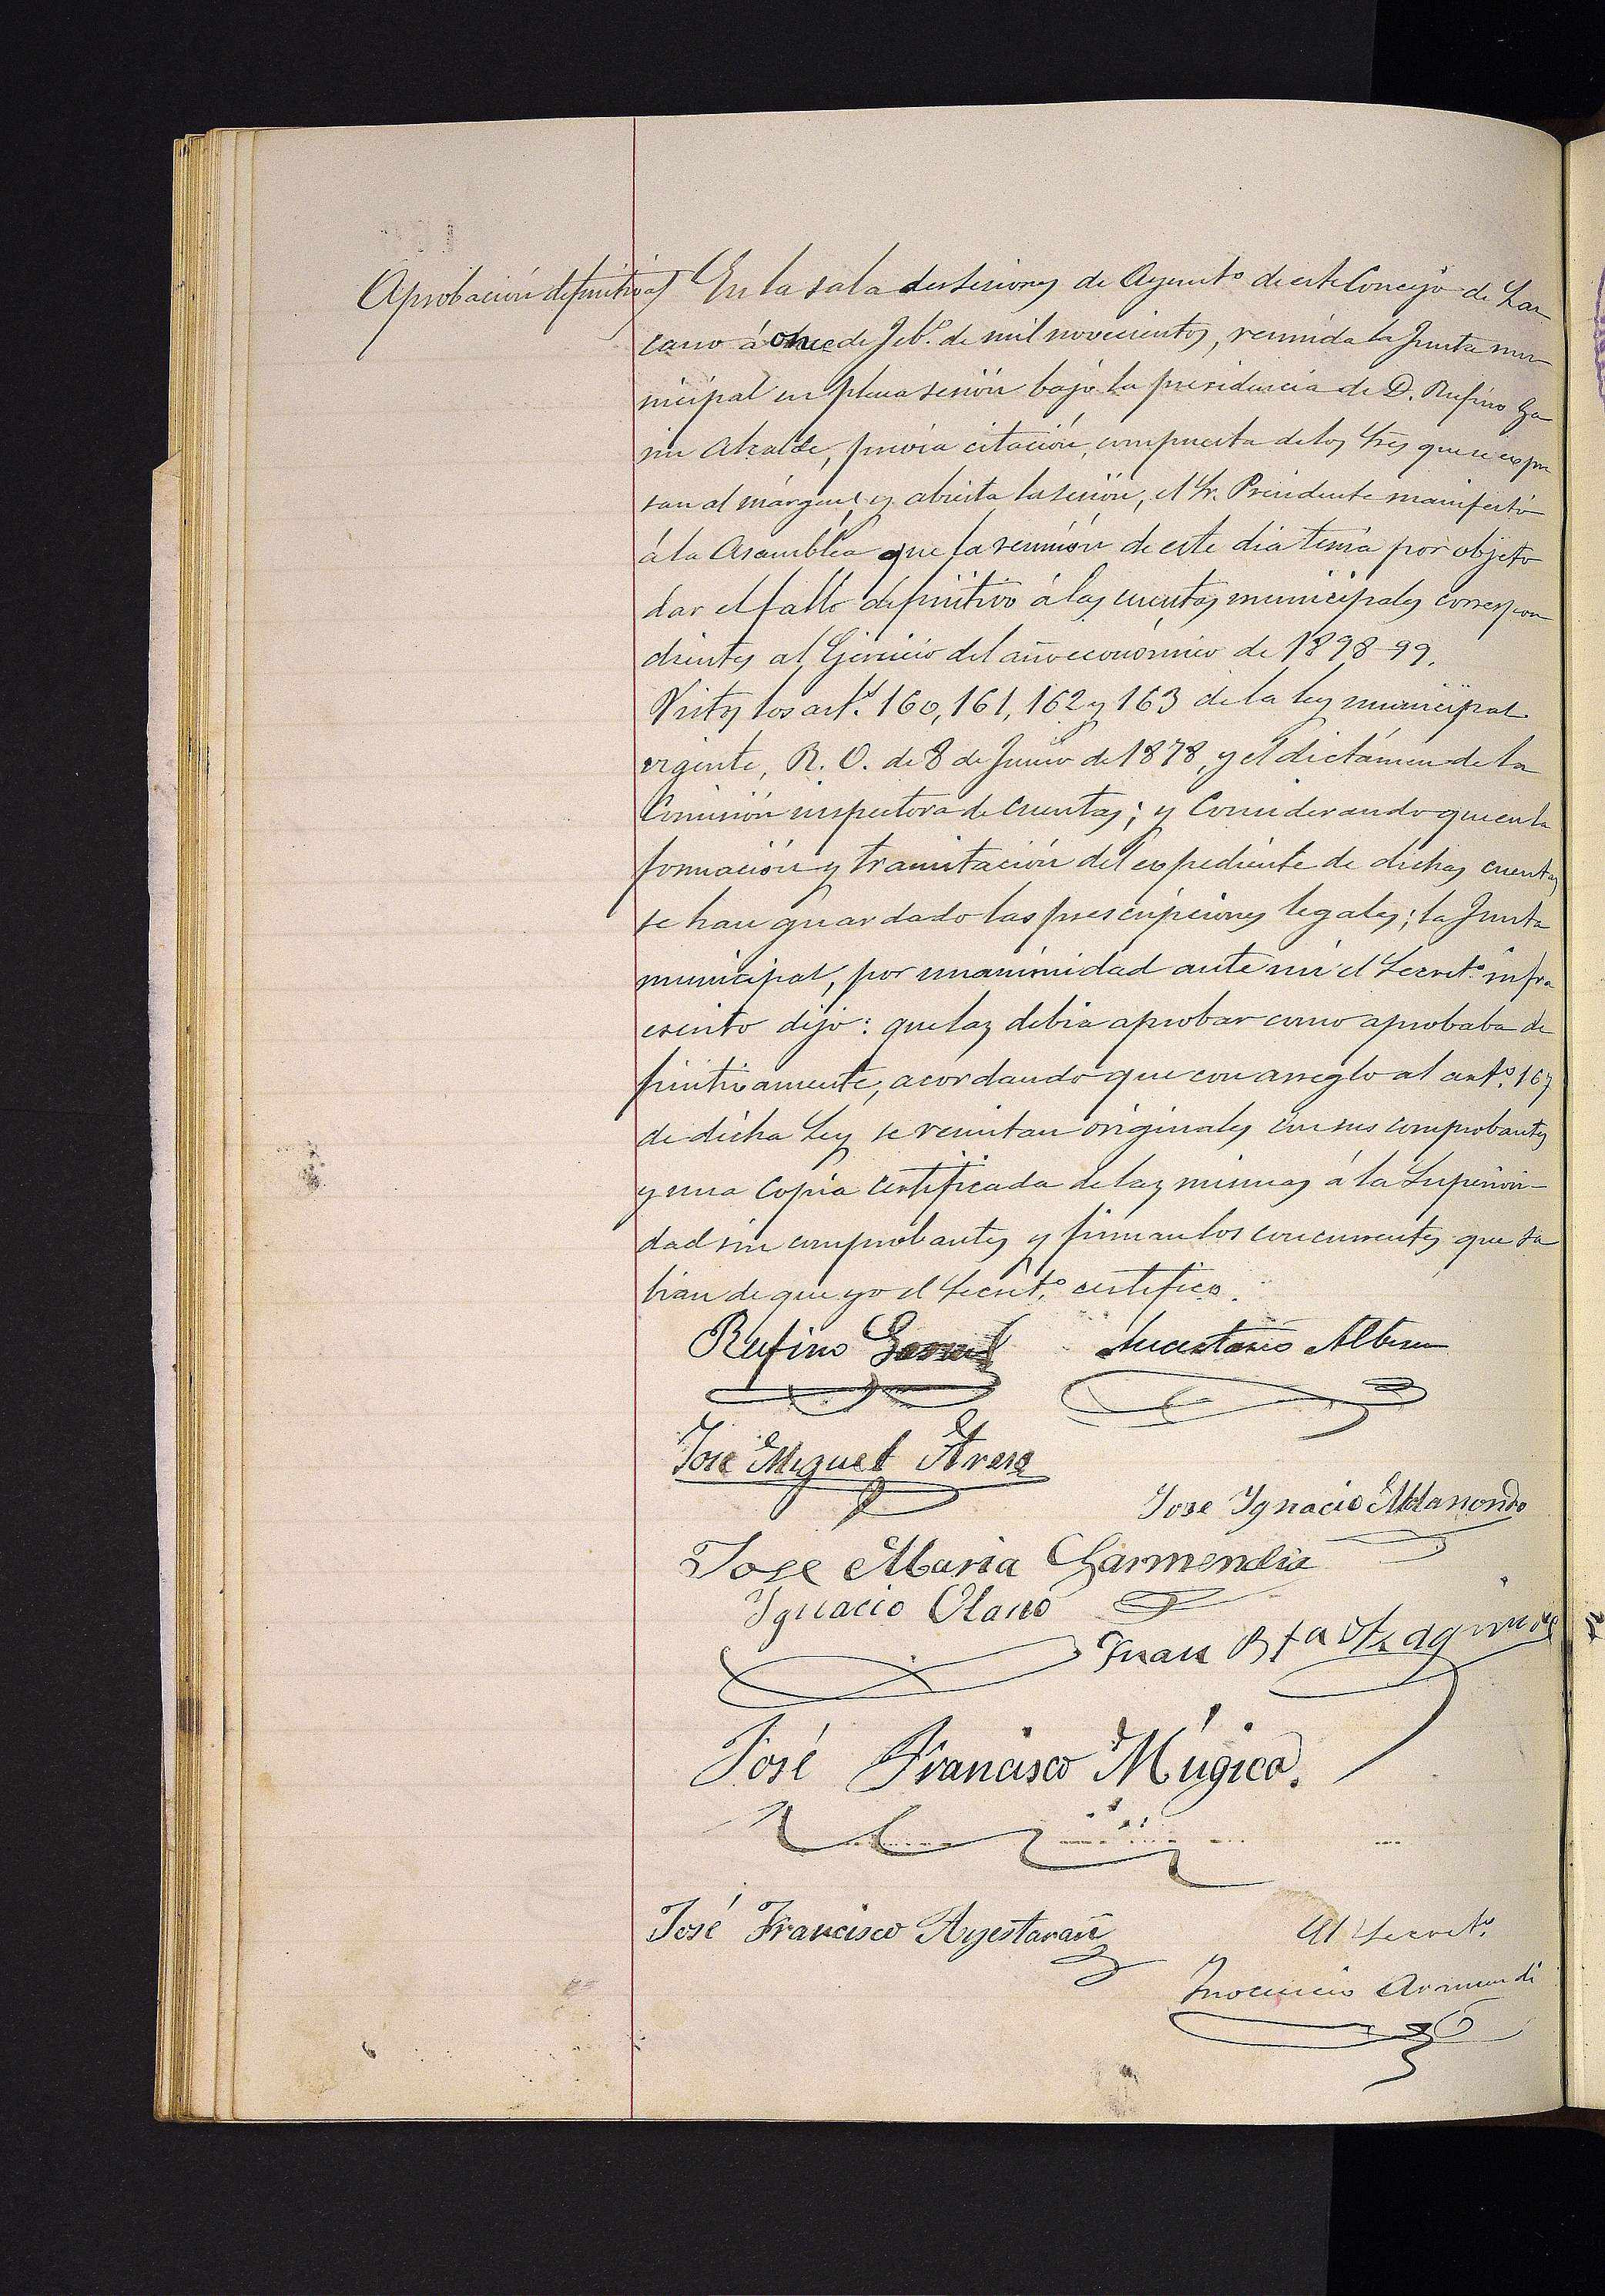 Aprobación definitiva
En la sala de sesiones de Ayunt.º de este Concejo de Laz
cano á once de Feb.º de mil novecientos, reunida la Junta mu
nicipal en plena sesión bajo la presidencia de D. Rufino Ga
Alcalde, previa citación, compuesta de los Sres que se expre
san al márgen, y abierta la sesión, el Sr. Presidente manifestó
á la Asamblea que la reunión de este dia tenía por objeto
dar el fallo definitivo á las cuentas municipales correspon
dientes al Ejercicio del año económico de 1898-99.
Vistos los art.s 160, 161, 162 y 163 de la ley municipal
vigente, R. O. de 8 de Junio de 1878, y el dictámen de la
Comisión inspectora de cuentas; y Considerando que en la
formación y tramitación del expediente de dichas cuentas
se han guardado las prescripciones legales; la Junta
municipal, por unanimidad ante mi el Secret.º infra
escrito dijo: que las debia aprobar como aprobaba de
finitivamente, acordando que con arreglo al art.º
de dicha Ley se remitan originales con sus comprobantes
y una copia certificada de las mismas á la Superiori-
dad sin comprobantes y firman los concurrentes que sa
bian de que yo el Secret.º certifico.
Rufino
José Miguel
Jose Ignacio Aldanondo
Jose Maria Garmendia
Ignacio Olano
Juan Bta
José Francisco Múgica.
José Francisco Ayestarán
El Secret.º
Inocencio Arimendi